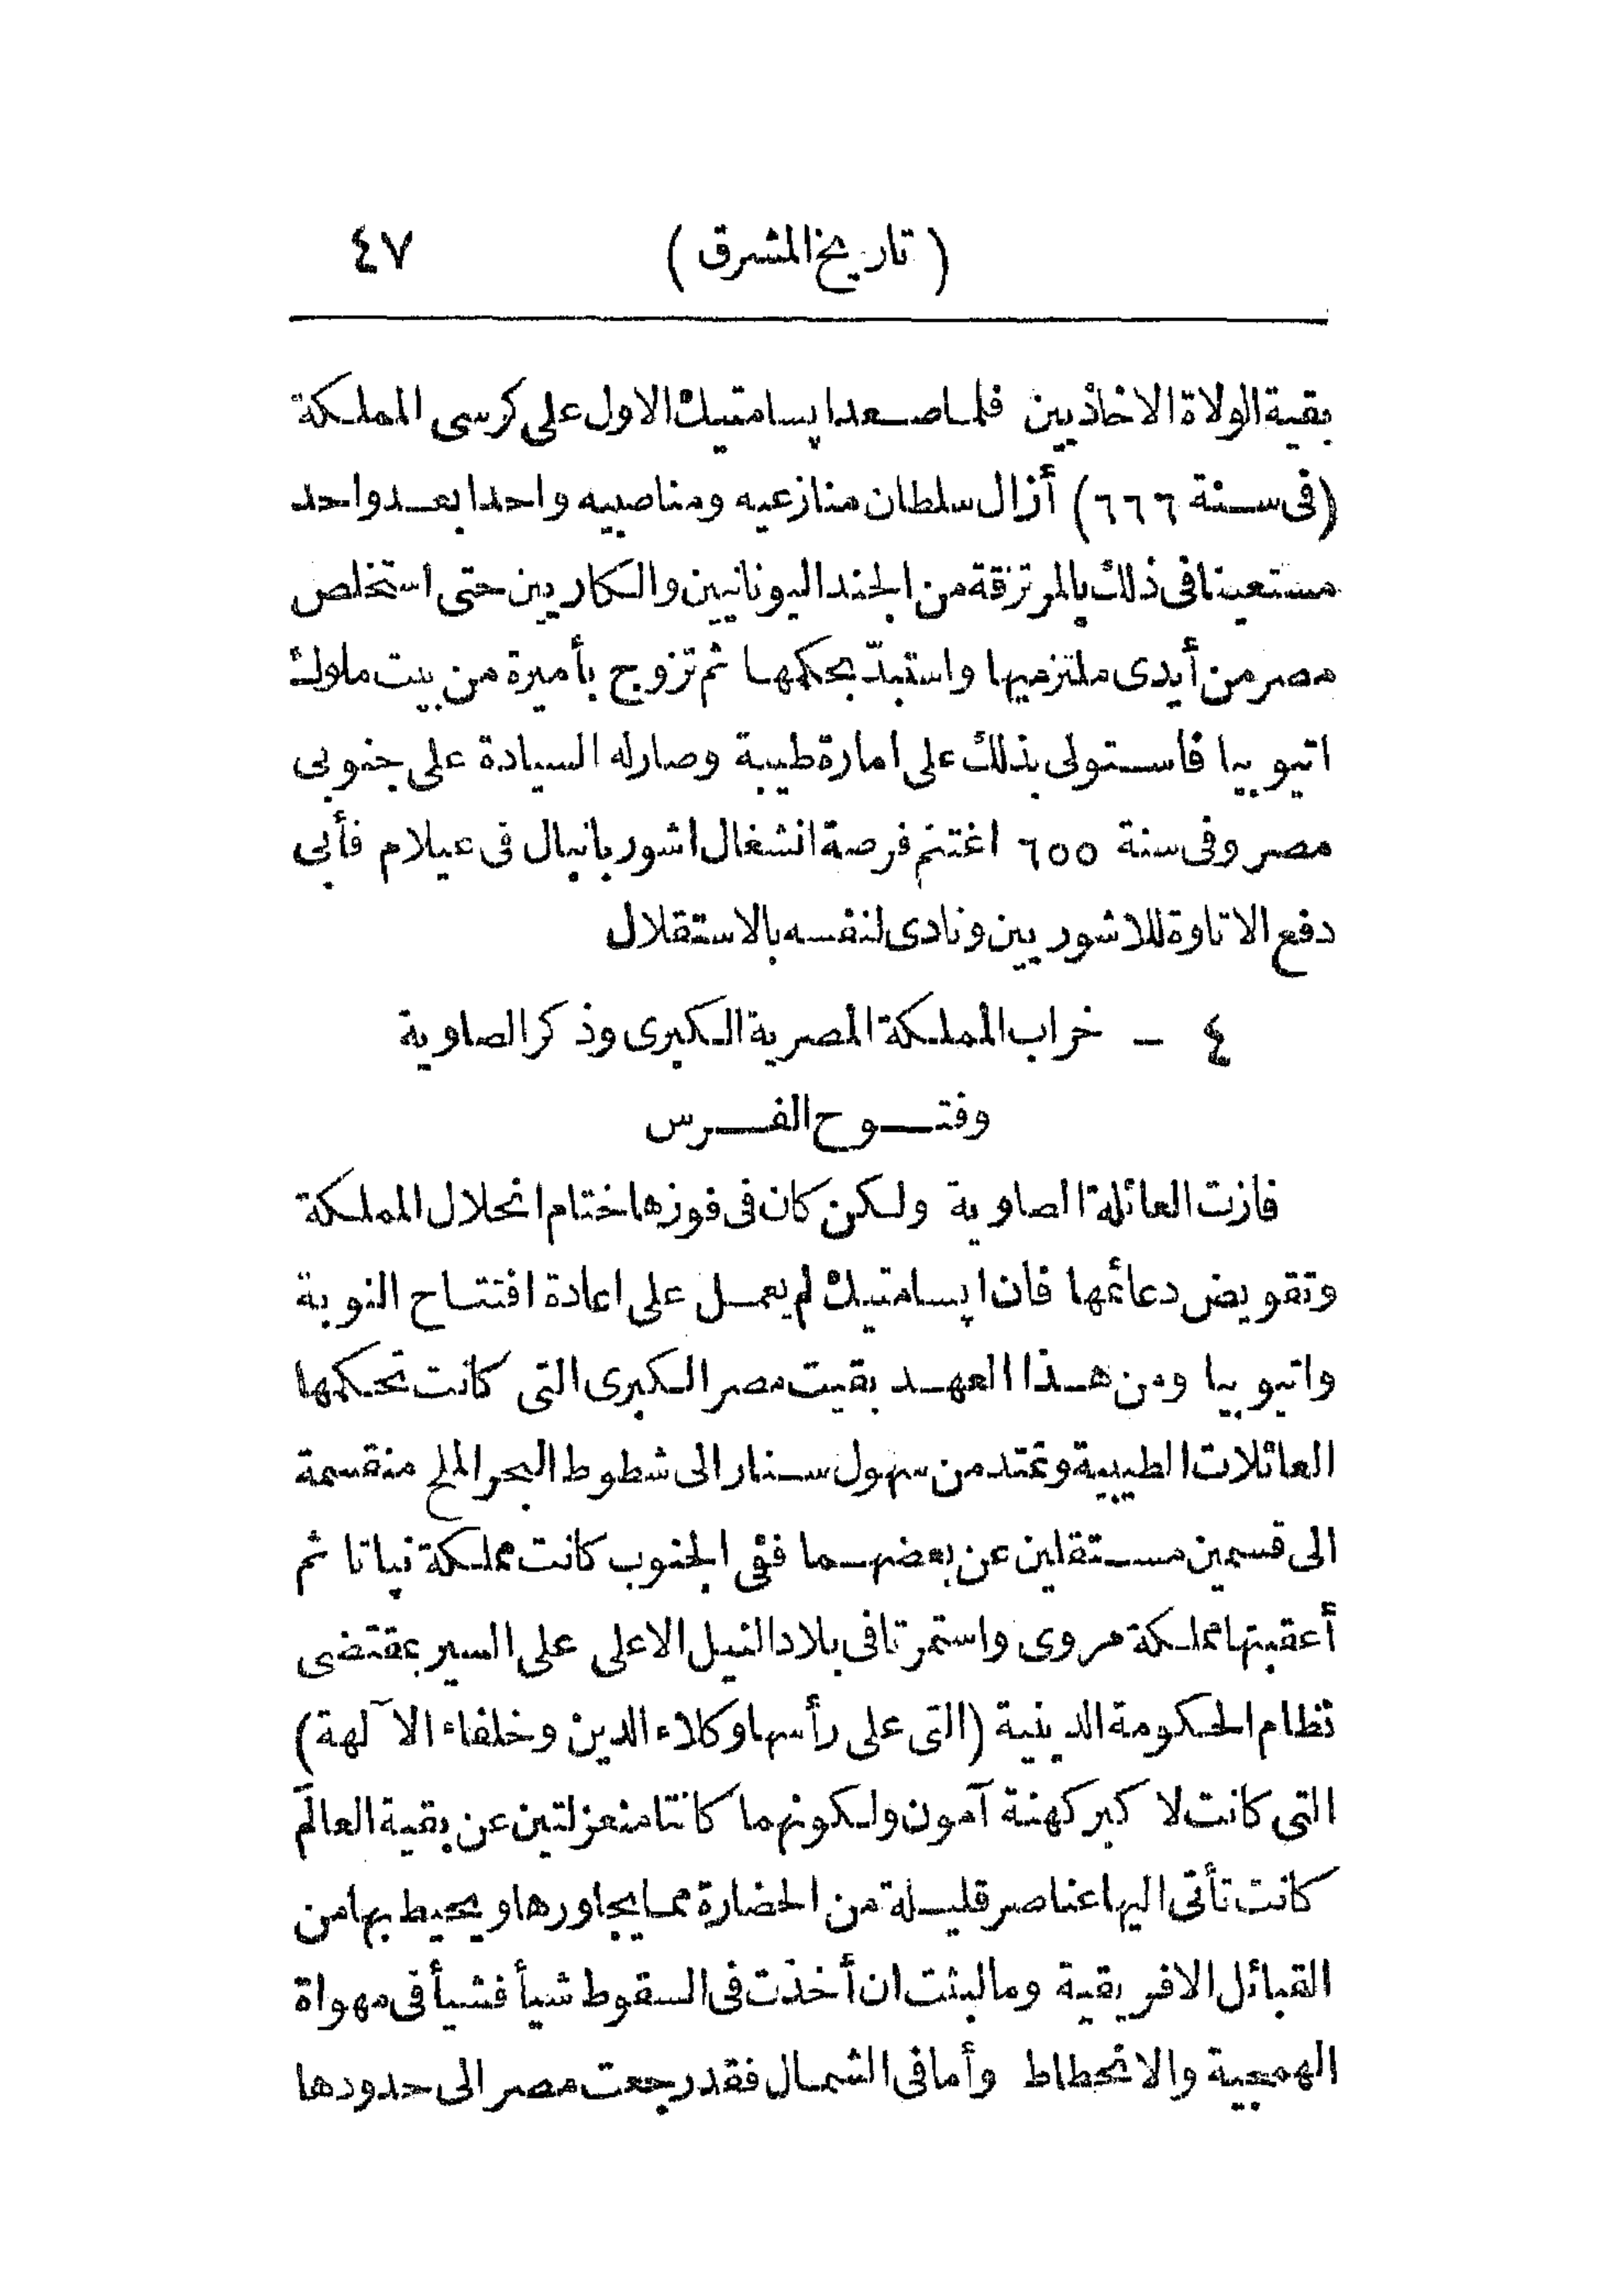 ( تاريخ المشرق ) ٤٧
بقية الولاة الاخاذيين فلما صعد اپسامتيك الاول على كرسى المملكة
(فى سنة ٦٦٦) أزال سلطان منازعيه ومناصبيه واحدا بعد واحد
مستعينا فى ذلك بالمرتزقة من الجند اليونانيين والكاريين حتى استخلص
مصر من أيدى ملتزميها واستبدّ بحكمها ثم تزوج بأميرة من بيت ملوك
اتيوبيا فاستولى بذلك على امارة طيبة وصار له السيادة على جنوبى
مصر وفى سنة ٦٥٥ اغتنم فرصة انشغال اشور بانيبال فى عيلام فأبى
دفع الاتاوة للاشوريين ونادى لنفسه بالاستقلال
٤ - خراب المملكة المصرية الكبرى وذكر الصاوية
وفتوح الفرس
فازت العائلة الصاوية ولكن كان فى فوزها ختام انحلال المملكة
وتقويض دعائمها فان اپسامتيك لم يعمل على اعادة افتتاح النوبة
واتيوبيا ومن هذا العهد بقيت مصر الكبرى التى كانت تحكمها
العائلات الطيبية وتمتد من سهول سنار الى شطوط البحر الملح منقسمة
الى قسمين مستقلين عن بعضهما ففى الجنوب كانت مملكة نپاتا ثم
أعقبتها مملكة مروى واستمرتا فى بلاد النيل الاعلى على السير بمقتضى
نظام الحكومة الدينية (التى على رأسها وكلاء الدين وخلفاء الآلهة)
التى كانت لاكبر كهنة آمون ولكونهما كانتا منعزلتين عن بقية العالَم
كانت تأتى اليها عناصر قليلة من الحضارة مما يجاورها ويحيط بها من
القبائل الافريقية وما لبثت ان أخذت فى السقوط شيأ فشيأ فى مهواة
الهمجية والانحطاط وأما فى الشمال فقد رجعت مصر الى حدودها